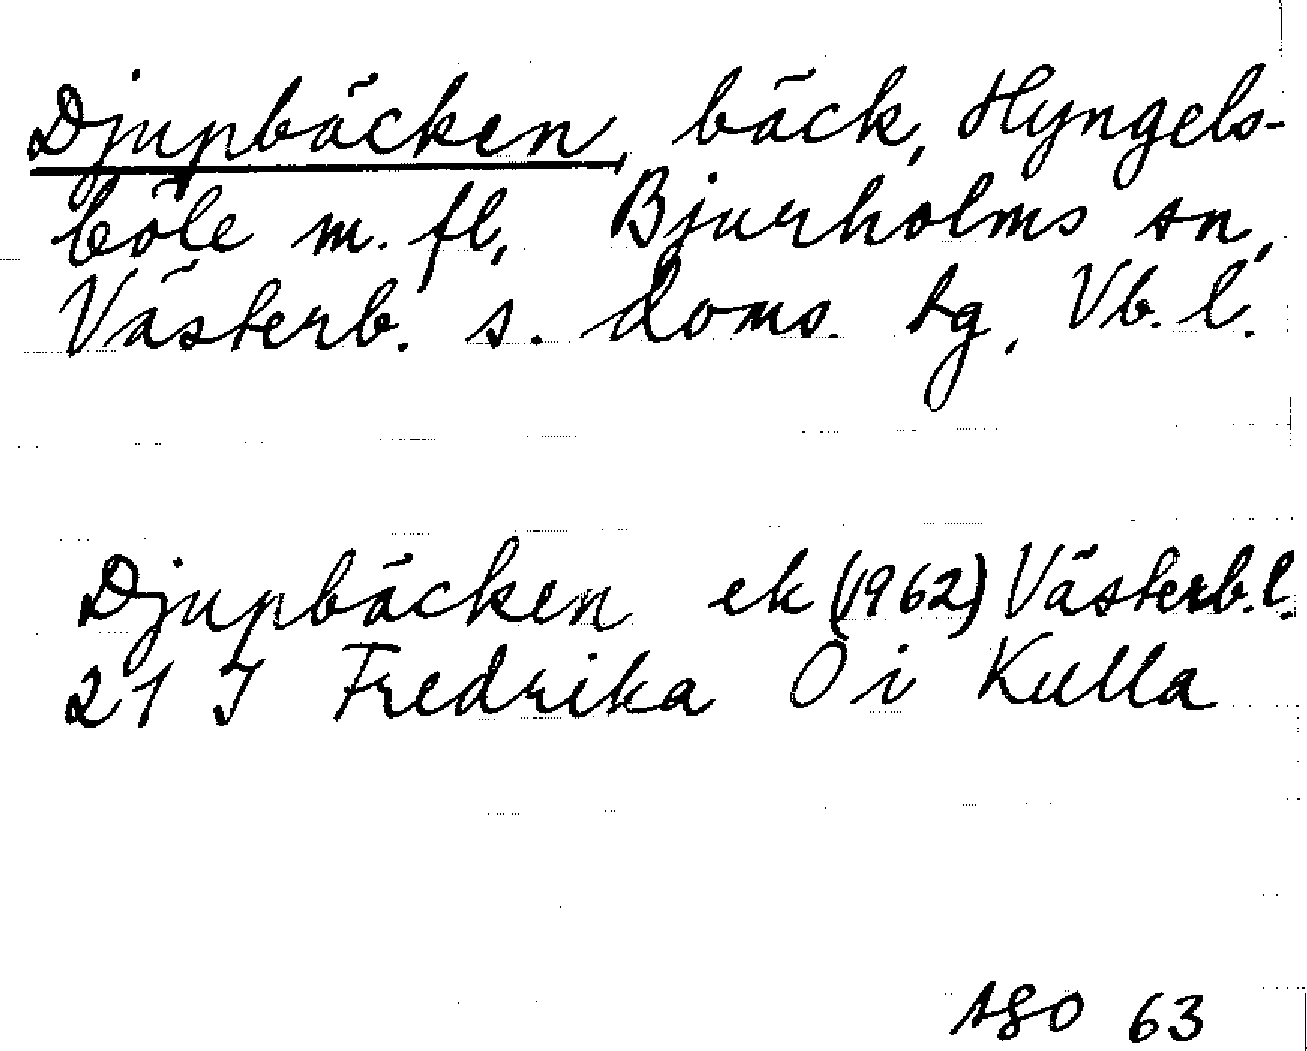 Djupbäcken, bäck, Hyngels-
böle m. fl., Bjurholms sn,
Västerb. s. doms. tg, Vb. l.
Djupbäcken ek (1962) Västerb. l.
21 J Fredrika Ö i Kulla
63